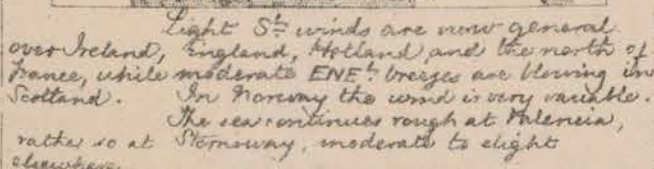 Light Sly winds are now general
over Ireland, England, Holland, and the north of
France, while moderate ENEly breezes are blowing in
Scotland. In Norway the wind is very variable.
The sea continues rough at Valencia,
rather so at Stornoway, moderate to slight
elsewhere.